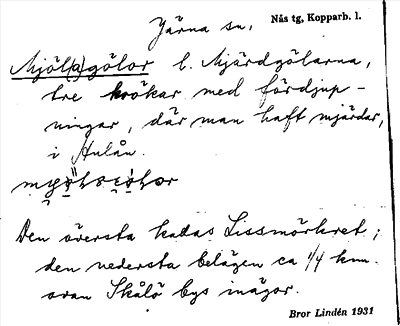 Järna sn. Nås tg, Kopparb. l.
Mjöl(a)gölor l. Mjärdgölarna,
tre krökar med fördjup-
ningar, där man haft mjärdar,
i Hulån.
Den översta kallas Lissmörkret;
den nedersta belägen ca 1/4 km.
ovan Skålö bys inägor.
Bror Lindén 1931